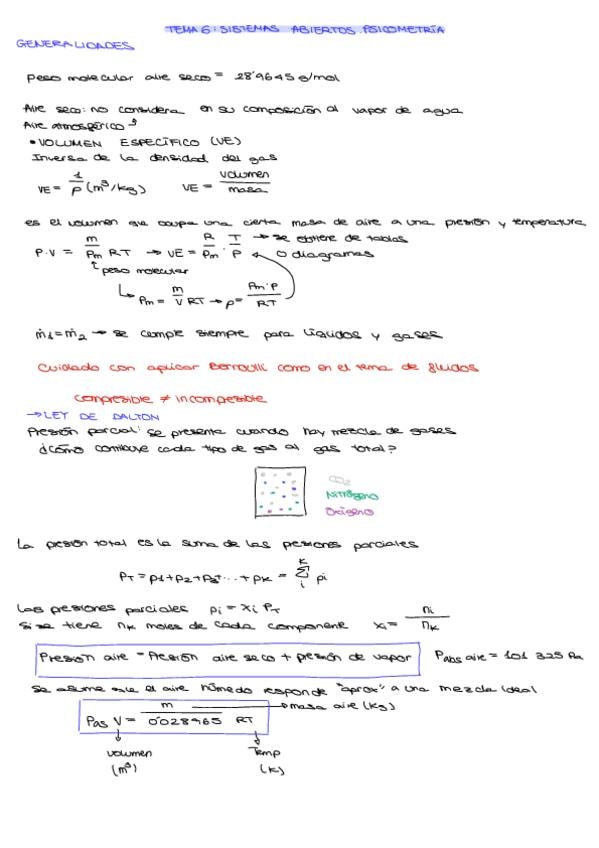 TEMA 6: SISTEMAS ABIERTOS. PSICOMETRÍA
GENERALIDADES
Peso molecular aire seco = 28'9645 g/mol
Aire seco: no considera en su composición al vapor de agua
Aire atmosférico
• VOLUMEN ESPECÍFICO (VE)
Inversa de la densidad del gas
VE = 1/ρ (m³/kg) VE = volumen/masa
es el volumen que ocupa una cierta masa de aire a una presión y temperatura
P·V = m/Pm RT → VE = R/Pm · T/P → se obtiene de tablas
o diagramas
peso molecular
Pm = m/V RT → ρ = Pm·P/RT
ṁ1 = ṁ2 → se cumple siempre para líquidos y gases
Cuidado con aplicar Bernoulli como en el tema de fluidos
compresible ≠ incompresible
→ LEY DE DALTON
Presión parcial: se presenta cuando hay mezcla de gases
¿Cómo contribuye cada tipo de gas al gas total?
CO2
Nitrógeno
Oxígeno
La presión total es la suma de las presiones parciales
PT = p1+p2+p3+...+pk = Σ pi
K
i
Las presiones parciales pi = xi PT
Si se tiene nk moles de cada componente xi = ni/nk
Presión aire = Presión aire seco + presión de vapor Pabs aire = 101 325 Pa
Se asume que el aire húmedo responde "aprox" a una mezcla ideal
Pas V = m/0'028965 RT → masa aire (kg)
volumen Temp
(m³) (K)